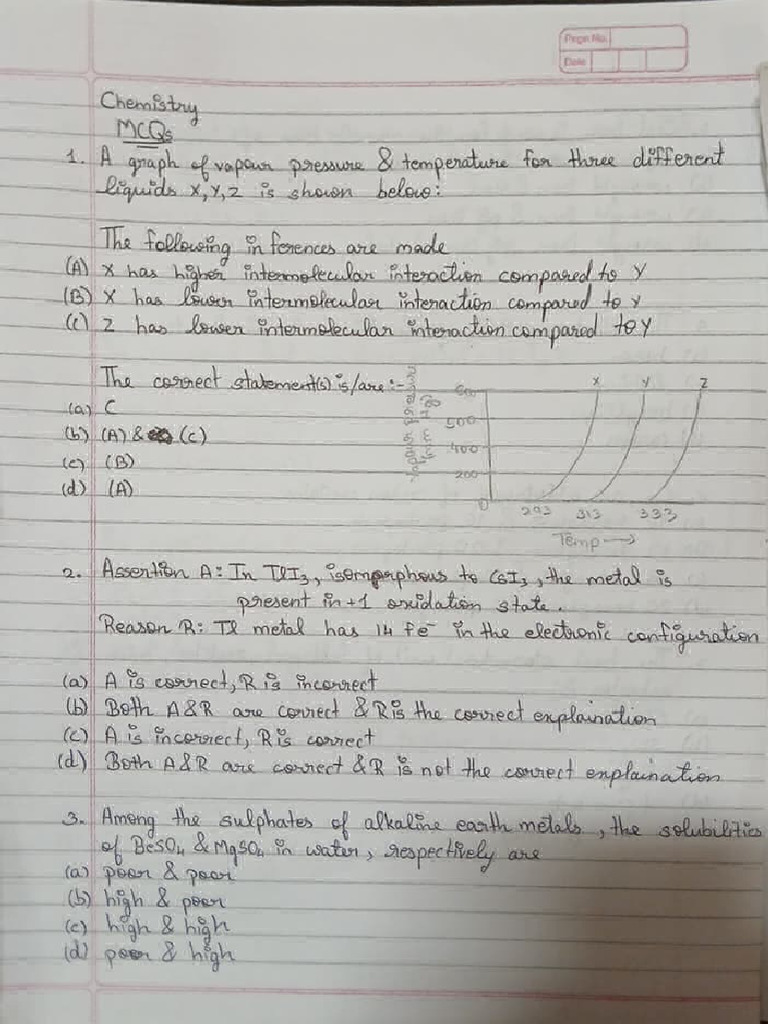 Page No.
Date
Chemistry
MCQs
1. A graph of vapour pressure & temperature for three different
liquids X, Y, Z is shown below:
The following inferences are made
(A) X has higher intermolecular interaction compared to Y
(B) X has lower intermolecular interaction compared to Y
(C) Z has lower intermolecular interaction compared to Y
The correct statement(s) is/are :-
(a) C
(b) (A) & (C)
(c) (B)
(d) (A)
X Y Z
500
400
200
0
293 313 333
Temp →
2. Assertion A: In TlI3, isomorphous to CsI3, the metal is
present in +1 oxidation state.
Reason R: Tl metal has 14 fe⁻ in the electronic configuration
(a) A is correct, R is incorrect
(b) Both A&R are correct & R is the correct explaination
(c) A is incorrect, R is correct
(d) Both A&R are correct & R is not the correct explaination
3. Among the sulphates of alkaline earth metals, the solubilities
of BeSO4 & MgSO4 in water, respectively are
(a) poor & poor
(b) high & poor
(c) high & high
(d) poor & high